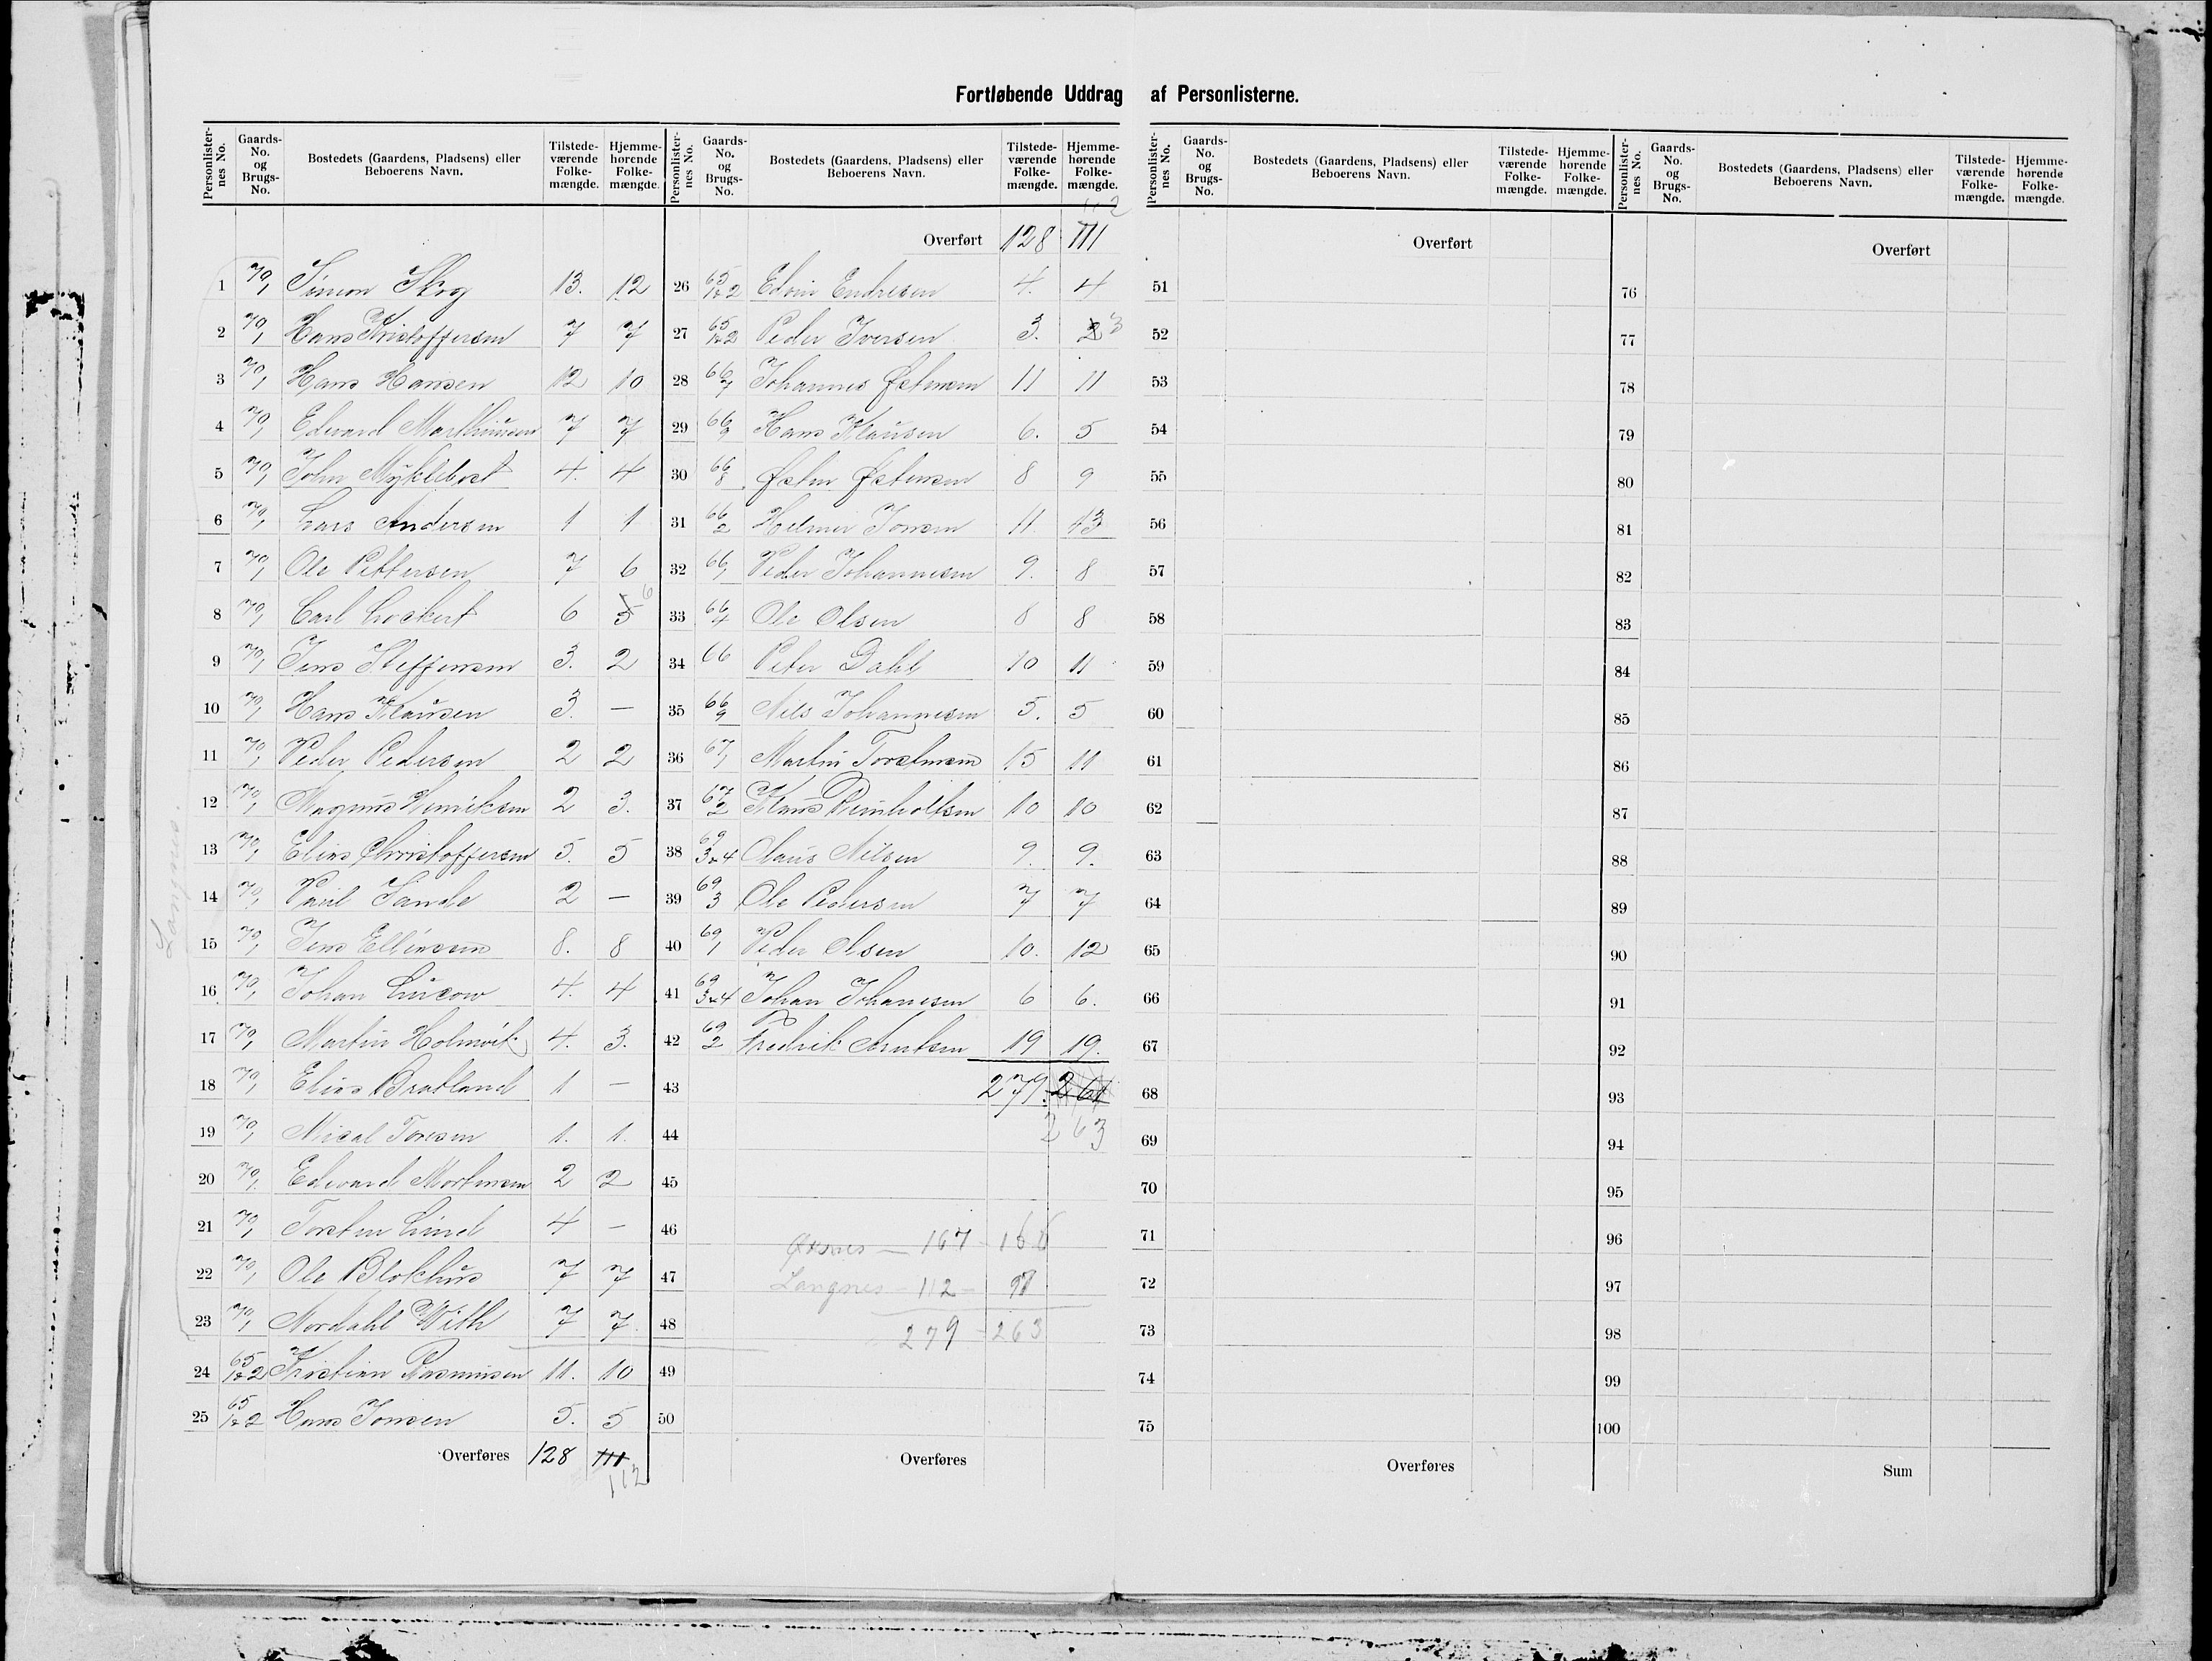 Fortløbende Uddrag af Personlisterne.
Personlisternes No. Gaards-No. og Brugs-No. Bostedets (Gaardens, Pladsens) eller Beboerens Navn. Tilstedeværende Folkemængde. Hjemmehørende Folkemængde.
1 70/1 Simon Skog 13. 12
2 70/1 Hans Kristoffersen 7 7
3 70/1 Hans Hansen 12 10
4 70/1 Edvard Marthinusen 7 7
5 70/1 John Myklebost 4. 4
6 70/1 Lars Andersen 1 1
7 70/1 Ole Pettersen 7 6
8 70/1 Carl Lockert 6 5 6
9 70/1 Jens Steffensen 3. 2
10 70/1 Hans Klausen 3. —
11 70/1 Peder Pedersen 2 2
12 70/1 Magnus Henriksen 2 3.
13 70/1 Elias Christoffersen 5. 5
14 70/1 Paul Sande 2 —
15 70/1 Jens Ellingsen 8. 8
16 70/1 Johan Lucow 4. 4
17 70/1 Martin Holmvik 4. 3.
18 70/1 Elias Bratland 1 —
19 70/1 Mical Toresen 1. 1.
20 70/1 Edvard Mortensen 2 2
21 70/1 Torsten Lind 4 —
22 70/1 Ole Blokhus 7 7
23 70/1 Nordahl With 7 7.
24 65/1&2 Kristian Rasmusen 11. 10
25 65/1&2 Hans Jonsen 5. 5
Overføres 128 111
112
Langnes.
Personlisternes No. Gaards-No. og Brugs-No. Bostedets (Gaardens, Pladsens) eller Beboerens Navn. Tilstedeværende Folkemængde. Hjemmehørende Folkemængde.
112
Overført 128 111
26 65/1&2 Edvin Endresen 4. 4
27 65/1&2 Peder Iversen 3. 2 3
28 66/7 Johannes Østensen 11 11
29 66 Hans Klausen 6. 5
30 66/8 Østen Østensen 8 9
31 66/2 Helmer Jonsen 11 13
32 66/1 Peder Johannesen 9. 8
33 66/4 Ole Olsen 8 8
34 66 Peter Dahl 10 11
35 66/9 Nils Johannesen 5. 5
36 67/1 Martin Torstensen 15 11
37 67/2 Klaus Reinholtsen 10 10
38 69/3&4 Claus Nilsen 9. 9.
39 69/3 Ole Pedersen 7 7
40 69/1 Peder Olsen 10. 12
41 69/3&4 Johan Johanesen 6 6.
42 69/2 Fredrik Arntsen 19 19.
43 279. 261
44 263
45
46 Øxsnes — 167 - 166
47 Langnes - 112 - 97
48 279 - 263
49
50
Overføres
Personlisternes No. Gaards-No. og Brugs-No. Bostedets (Gaardens, Pladsens) eller Beboerens Navn. Tilstedeværende Folkemængde. Hjemmehørende Folkemængde.
Overført
51
52
53
54
55
56
57
58
59
60
61
62
63
64
65
66
67
68
69
70
71
72
73
74
75
Overføres
Personlisternes No. Gaards-No. og Brugs-No. Bostedets (Gaardens, Pladsens) eller Beboerens Navn. Tilstedeværende Folkemængde. Hjemmehørende Folkemængde.
Overført
76
77
78
79
80
81
82
83
84
85
86
87
88
89
90
91
92
93
94
95
96
97
98
99
100
Sum